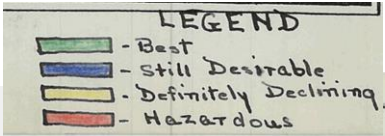 LEGEND
- Best
- Still Desirable
- Definitely Declining
- Hazardous